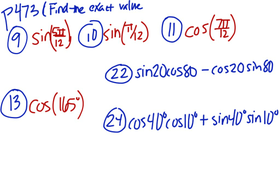 P473 (Find the exact value
⑨ sin(5π/12) ⑩ sin(π/12) ⑪ cos(7π/12)
㉒ sin20cos80 - cos20sin80
⑬ cos(165°)
㉔ cos40°cos10° + sin40°sin10°